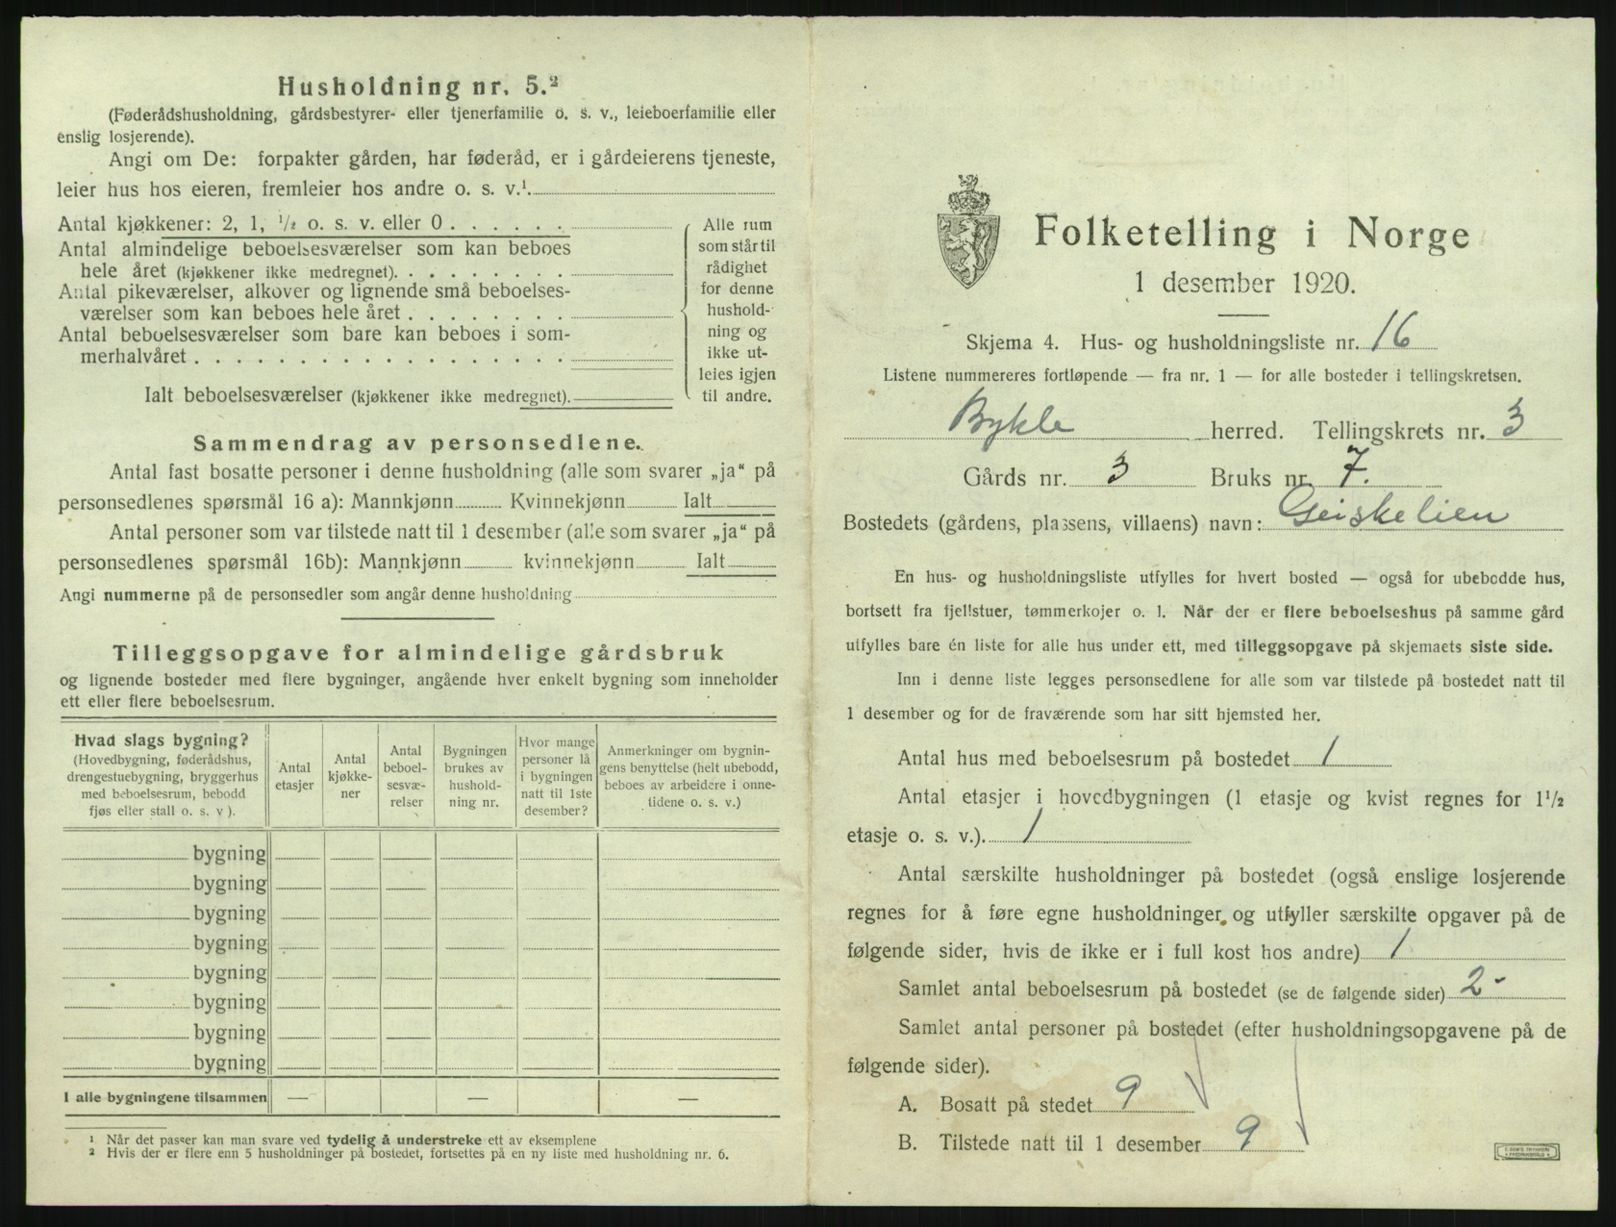 Husholdning nr. 5.²
(Føderådshusholdning, gårdsbestyrer- eller tjenerfamilie o. s. v., leieboerfamilie eller
enslig losjerende).
Angi om De: forpakter gården, har føderåd, er i gårdeierens tjeneste,
leier hus hos eieren, fremleier hos andre o. s. v.¹.
Antal kjøkkener: 2, 1, ½ o. s. v. eller 0 . . . . . .
Antal almindelige beboelsesværelser som kan beboes
hele året (kjøkkener ikke medregnet). . . . . . . . .
Antal pikeværelser, alkover og lignende små beboelses-
værelser som kan beboes hele året . . . . . . . .
Antal beboelsesværelser som bare kan beboes i som-
merhalvåret . . . . . . . . . . . . . . . . . .
Ialt beboelsesværelser (kjøkkener ikke medregnet).
Alle rum
som står til
rådighet
for denne
hushold-
ning og
ikke ut-
leies igjen
til andre.
Sammendrag av personsedlene.
Antal fast bosatte personer i denne husholdning (alle som svarer „ja“ på
personsedlenes spørsmål 16 a): Mannkjønn Kvinnekjønn Ialt
Antal personer som var tilstede natt til 1 desember (alle som svarer „ja“ på
personsedlenes spørsmål 16b): Mannkjønn kvinnekjønn Ialt
Angi nummerne på de personsedler som angår denne husholdning
Tilleggsopgave for almindelige gårdsbruk
og lignende bosteder med flere bygninger, angående hver enkelt bygning som inneholder
ett eller flere beboelsesrum.
Hvad slags bygning?
(Hovedbygning, føderådshus,
drengestuebygning, bryggerhus
med beboelsesrum, bebodd
fjøs eller stall o. s. v ).
Antal
etasjer
Antal
kjøkke-
ner
Antal
beboel-
sesvæ-
relser
Bygningen
brukes av
hushold-
ning nr.
Hvor mange
personer lå
i bygningen
natt til 1ste
desember?
Anmerkninger om bygnin-
gens benyttelse (helt ubebodd,
beboes av arbeidere i onne-
tidene o. s. v.)
bygning
bygning
bygning
bygning
bygning
bygning
bygning
bygning
I alle bygningene tilsammen — — —
¹ Når det passer kan man svare ved tydelig å understreke ett av eksemplene
² Hvis der er flere enn 5 husholdninger på bostedet, fortsettes på en ny liste med husholdning nr. 6.
Folketelling i Norge
1 desember 1920.
Skjema 4. Hus- og husholdningsliste nr. 16
Listene nummereres fortløpende — fra nr. 1 — for alle bosteder i tellingskretsen.
Bykle herred. Tellingskrets nr. 3
Gårds nr. 3 Bruks nr. 7.
Bostedets (gårdens, plassens, villaens) navn: Geiskelien
En hus- og husholdningsliste utfylles for hvert bosted — også for ubebodde hus,
bortsett fra fjellstuer, tømmerkojer o. l. Når der er flere beboelseshus på samme gård
utfylles bare én liste for alle hus under ett, med tilleggsopgave på skjemaets siste side.
Inn i denne liste legges personsedlene for alle som var tilstede på bostedet natt til
1 desember og for de fraværende som har sitt hjemsted her.
Antal hus med beboelsesrum på bostedet 1
Antal etasjer i hovedbygningen (1 etasje og kvist regnes for 1½
etasje o. s. v.). 1
Antal særskilte husholdninger på bostedet (også enslige losjerende
regnes for å føre egne husholdninger og utfyller særskilte opgaver på de
følgende sider, hvis de ikke er i full kost hos andre) 1
Samlet antal beboelsesrum på bostedet (se de følgende sider) 2-
Samlet antal personer på bostedet (efter husholdningsopgavene på de
følgende sider).
A. Bosatt på stedet 9
B. Tilstede natt til 1 desember 9